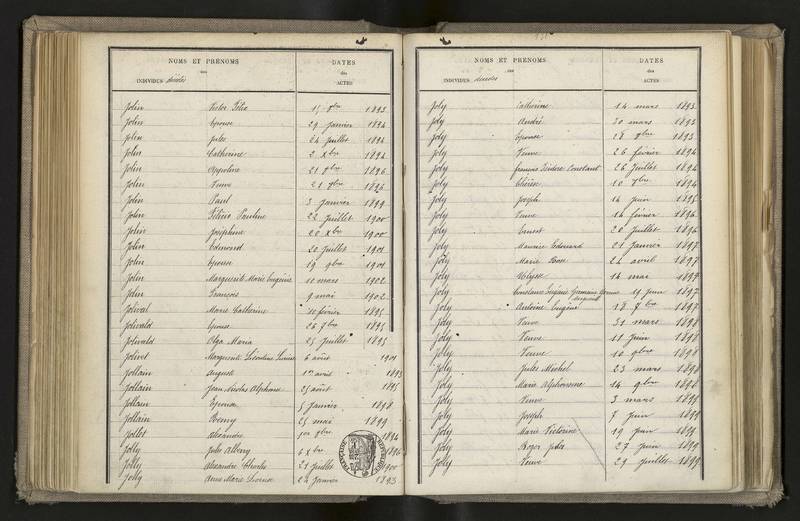 NOMS ET PRÉNOMS DATES
des des
INDIVIDUS décédés ACTES
Jolin Victor 15 1893
Jolin épouse 29 Janvier 1894
Jolin Jules 24 Juillet 1894
Jolin Catherine 2 Xbre 1894
Jolin 21 9bre 1896
Jolin Veuve 21 9bre 1896
Jolin Paul 3 Janvier 1899
Jolin Pauline 22 Juillet 1900
Jolin Joséphine 20 Xbre 1900
Jolin Edmond 20 Juillet 1901
Jolin épouse 19 9bre 1901
Jolin Marguerite Marie Eugénie 11 mars 1902
Jolin François 9 mai 1902
Jolival Marie Catherine 10 février 1895
Jolivald épouse 26 7bre 1895
Jolivald Olga Maria 25 Juillet 1895
Jolivet Marguerite 6 août 1901
Jollain Auguste 1er avril 1893
Jollain Jean Nicolas Alphonse 25 août 1895
Jollain Epouse 5 Janvier 1898
Jollain Rémy 25 mai 1899
Jollet Alexandre 1894
Jolly Jules Albery 6 Xbre 1896
Jolly Alexandre Charles 21 Juillet 1900
Jolly Anne Marie 24 Janvier 1893
NOMS ET PRÉNOMS DATES
des des
INDIVIDUS décédés ACTES
Joly Catherine 14 mars 1893
Joly André 30 mars 1893
Joly Epouse 28 9bre 1893
Joly Veuve 26 février 1894
Joly françois Isidore Constant 26 Juillet 1894
Joly Thérèse 10 1894
Joly Joseph 14 Juin 1895
Joly Veuve 14 février 1896
Joly Ernest 20 Juillet 1896
Joly Maurice Edouard 21 Janvier 1897
Joly Marie Rose 22 avril 1897
Joly Ulysse 14 mai 1897
Joly Constance Eugénie Germaine 11 Juin 1897
Joly Antoine Eugène 18 7bre 1897
Joly Veuve 31 mars 1898
Joly Veuve 11 Juin 1898
Joly Veuve 10 9bre 1898
Joly Jules Michel 23 mars 1898
Joly Marie Alphonsine 14 9bre 1898
Joly Veuve 3 mars 1899
Joly Joseph 7 Juin 1899
Joly Marie Victorine 19 Juin 1899
Joly Roger 27 Juin 1899
Joly Veuve 29 Juillet 1899